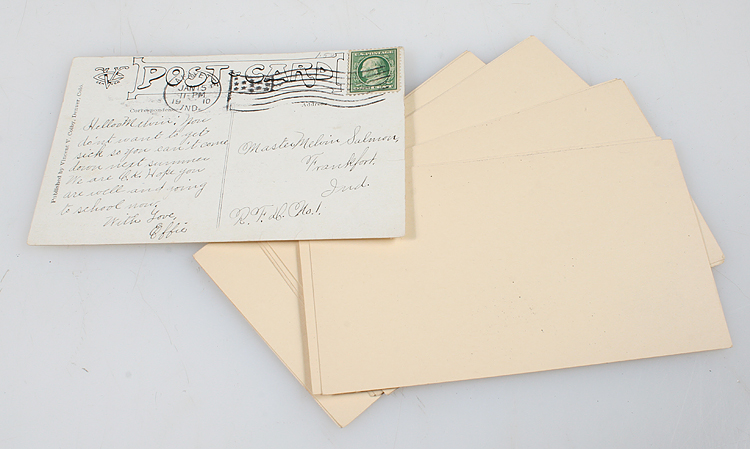 POST CARD
JAN 15
11-PM
1910
IND.
U.S. POSTAGE
Correspondence
Address
Published by Vincent V. Colby, Denver, Colo.
Hello Melvin: You
don't want to get
sick so you can't come
down next summer
We are O.K. Hope you
are well and going
to school now.
With Love,
Effie
Master Melvin Salmon,
Frankfort,
Ind.
R.F.D. No. 1.